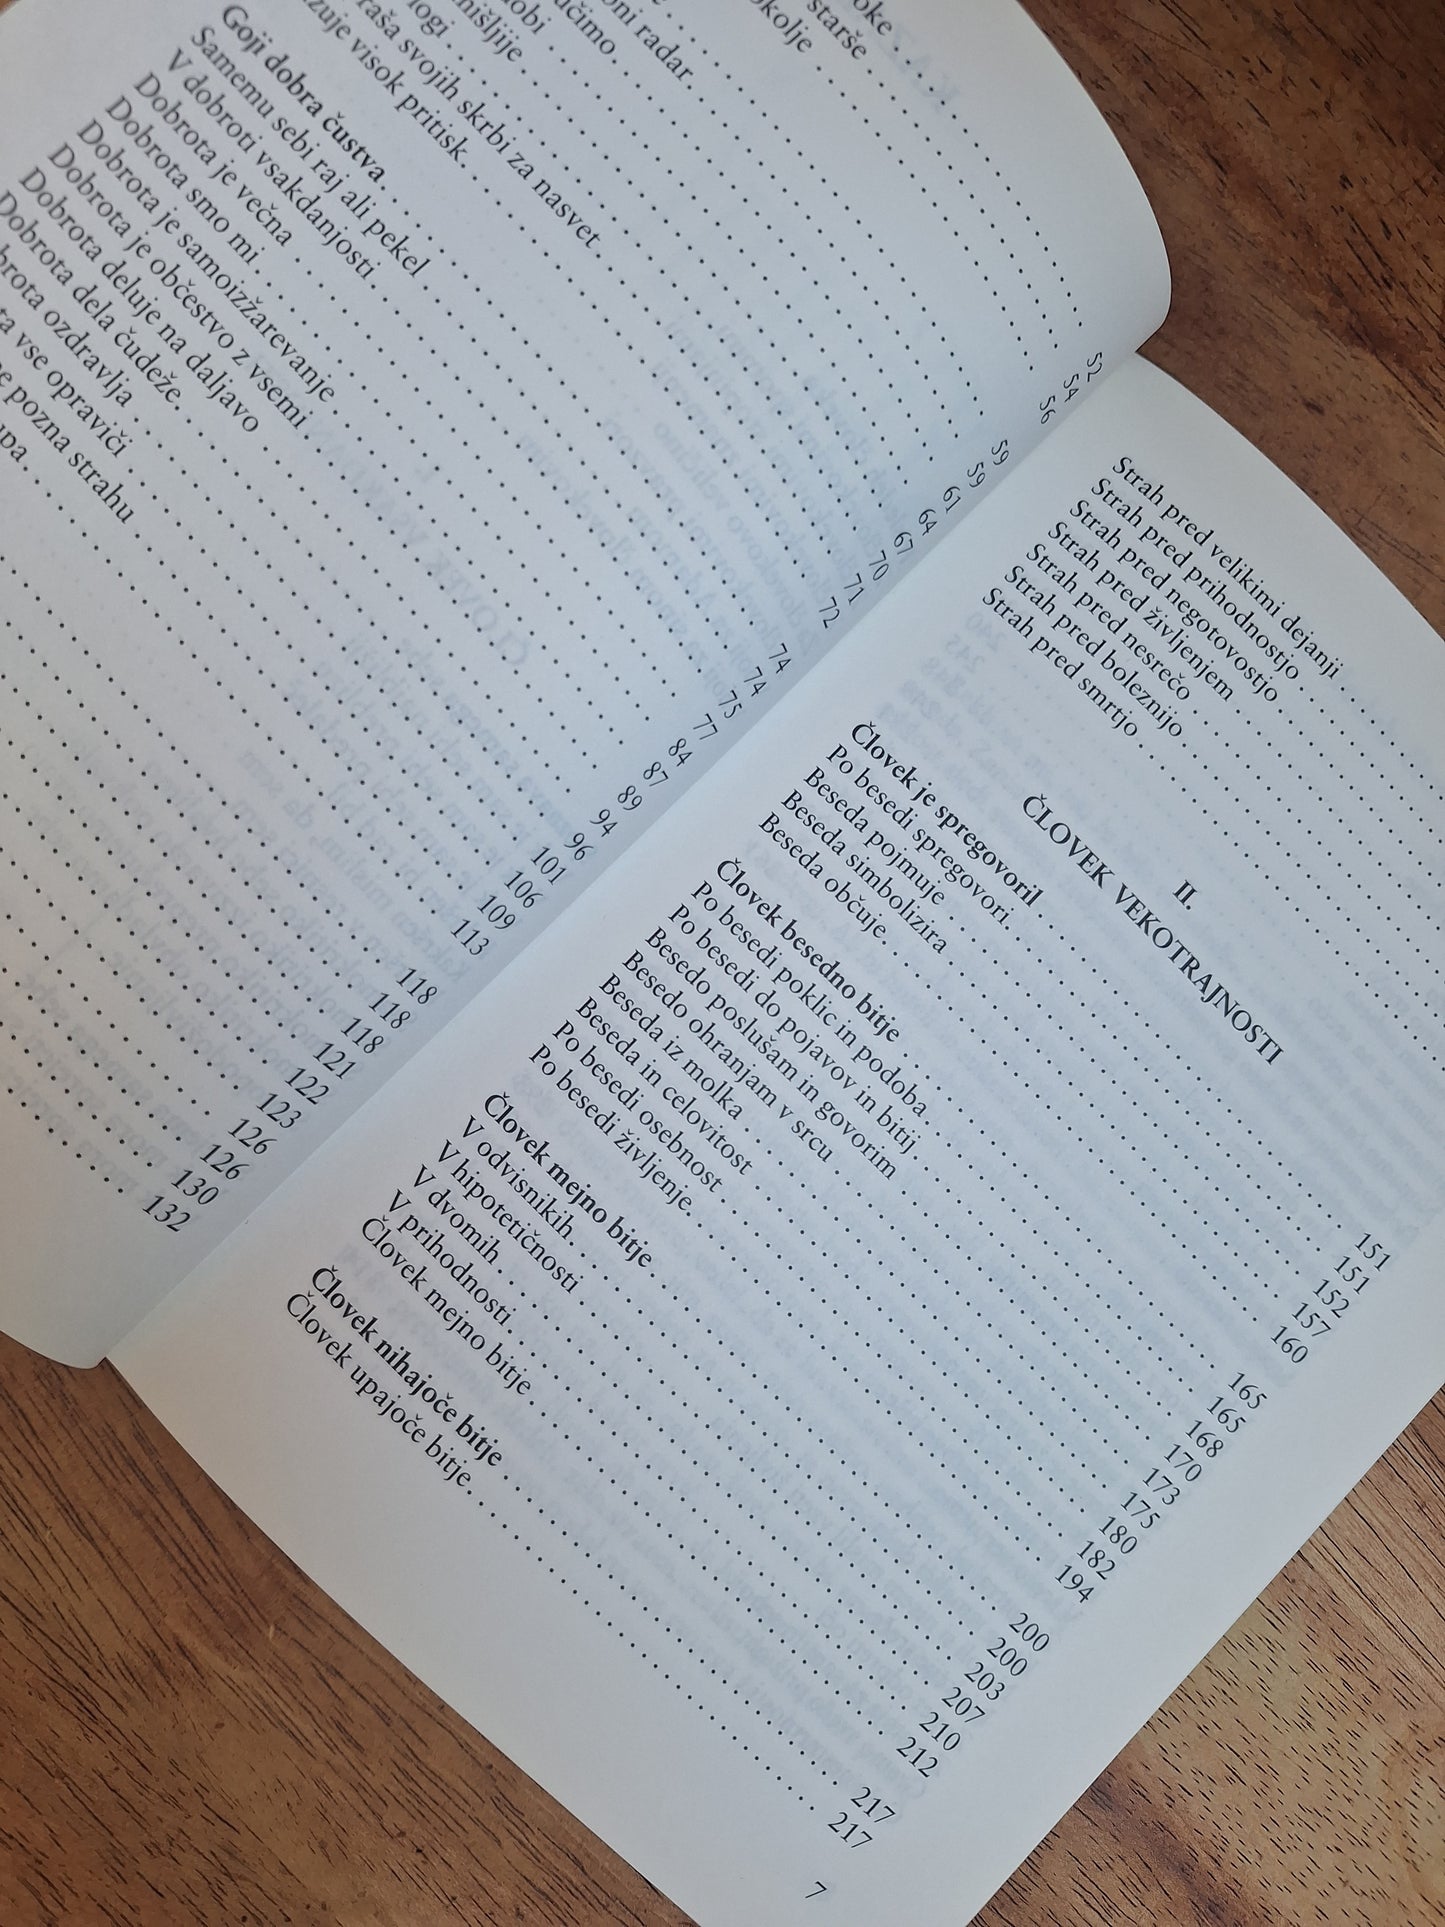 oke . . . 52
starše . . . 54
okolje . . . 56
. . . 59
oni radar . . . 59
učimo . . . 61
obi . . . 64
. . . 67
logi . . . 70
svojih skrbi za nasvet . . . 71
visok pritisk . . . 72
Goji dobra čustva . . . 74
Samemu sebi raj ali pekel . . . 74
V dobroti vsakdanjosti . . . 75
Dobrota je večna . . . 77
Dobrota smo mi . . . 84
Dobrota je samoizžarevanje . . . 87
Dobrota je občestvo z vsemi . . . 89
Dobrota deluje na daljavo . . . 94
Dobrota dela čudeže . . . 96
brota ozdravlja . . . 101
ta vse opraviči . . . 106
ne pozna strahu . . . 109
upa . . . 113
. . . 118
. . . 118
. . . 118
. . . 121
. . . 122
. . . 123
. . . 126
. . . 126
. . . 130
. . . 132
Strah pred velikimi dejanji . . .
Strah pred prihodnostjo . . .
Strah pred negotovostjo . . .
Strah pred življenjem . . .
Strah pred nesrečo . . .
Strah pred boleznijo . . .
Strah pred smrtjo . . .
II.
ČLOVEK VEKOTRAJNOSTI
Človek je spregovoril . . . 151
Po besedi spregovori . . . 151
Beseda pojmuje . . . 152
Beseda simbolizira . . . 157
Beseda občuje . . . 160
Človek besedno bitje . . . 165
Po besedi poklic in podoba . . . 165
Po besedi do pojavov in bitij . . . 168
Besedo poslušam in govorim . . . 170
Besedo ohranjam v srcu . . . 173
Beseda iz molka . . . 175
Beseda in celovitost . . . 180
Po besedi osebnost . . . 182
Po besedi življenje . . . 194
Človek mejno bitje . . . 200
V odvisnikih . . . 200
V hipotetičnosti . . . 203
V dvomih . . . 207
V prihodnosti . . . 210
Človek mejno bitje . . . 212
Človek nihajoče bitje . . . 217
Človek upajoče bitje . . . 217
7